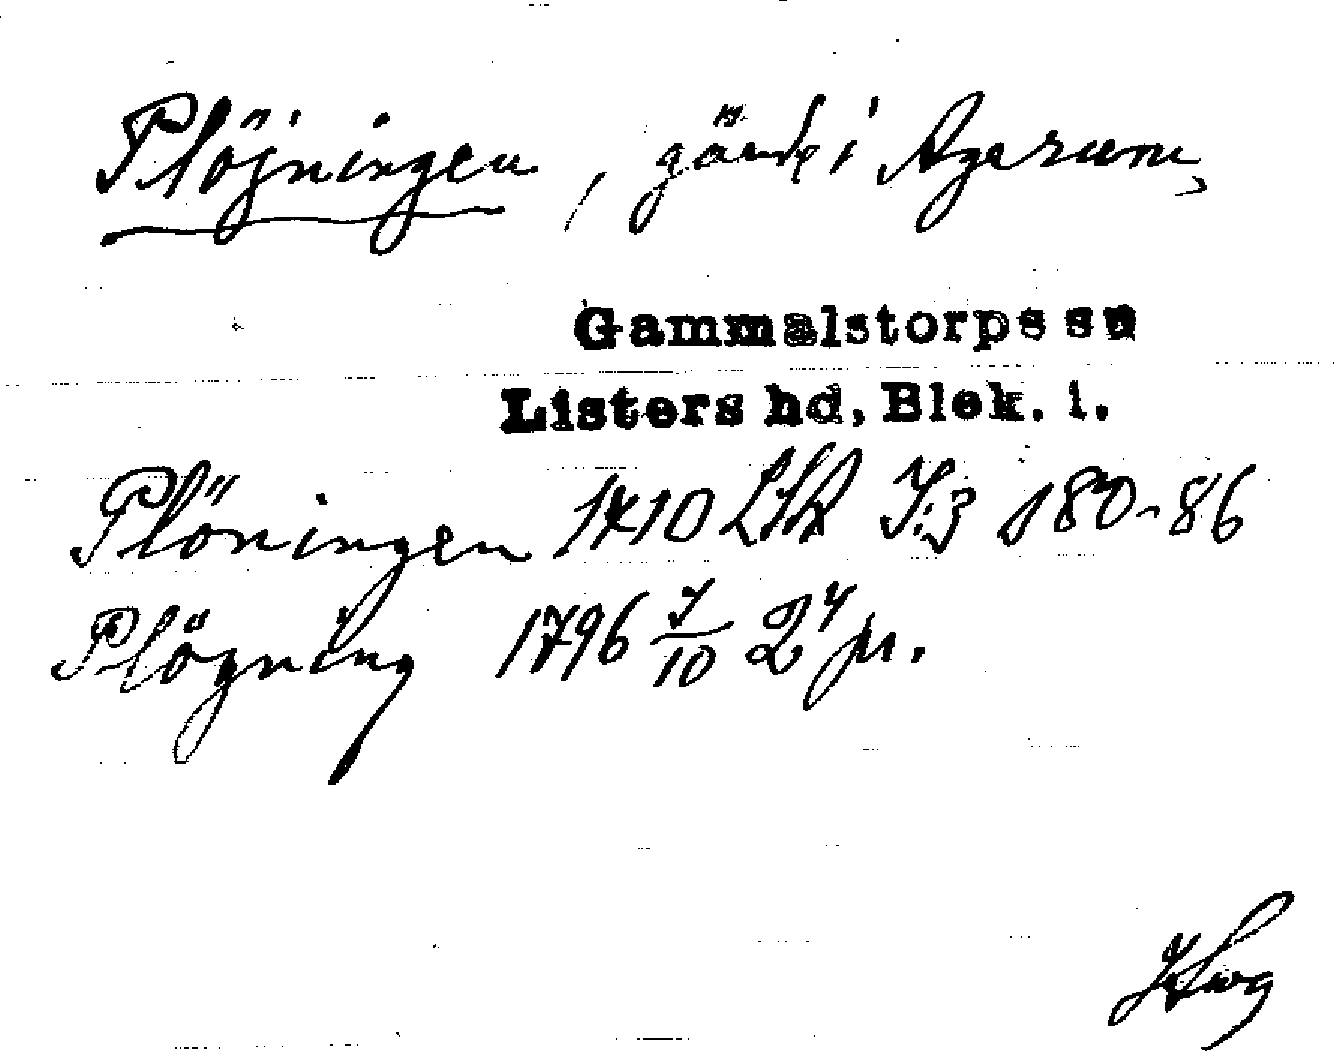 Plöjningen, gärde i Agerum,
Gammalstorps sn
Listers hd, Blek. l.
Plöningen 1710 LSA J:3 180-86
Plögning 1796 7/10 24 pr.